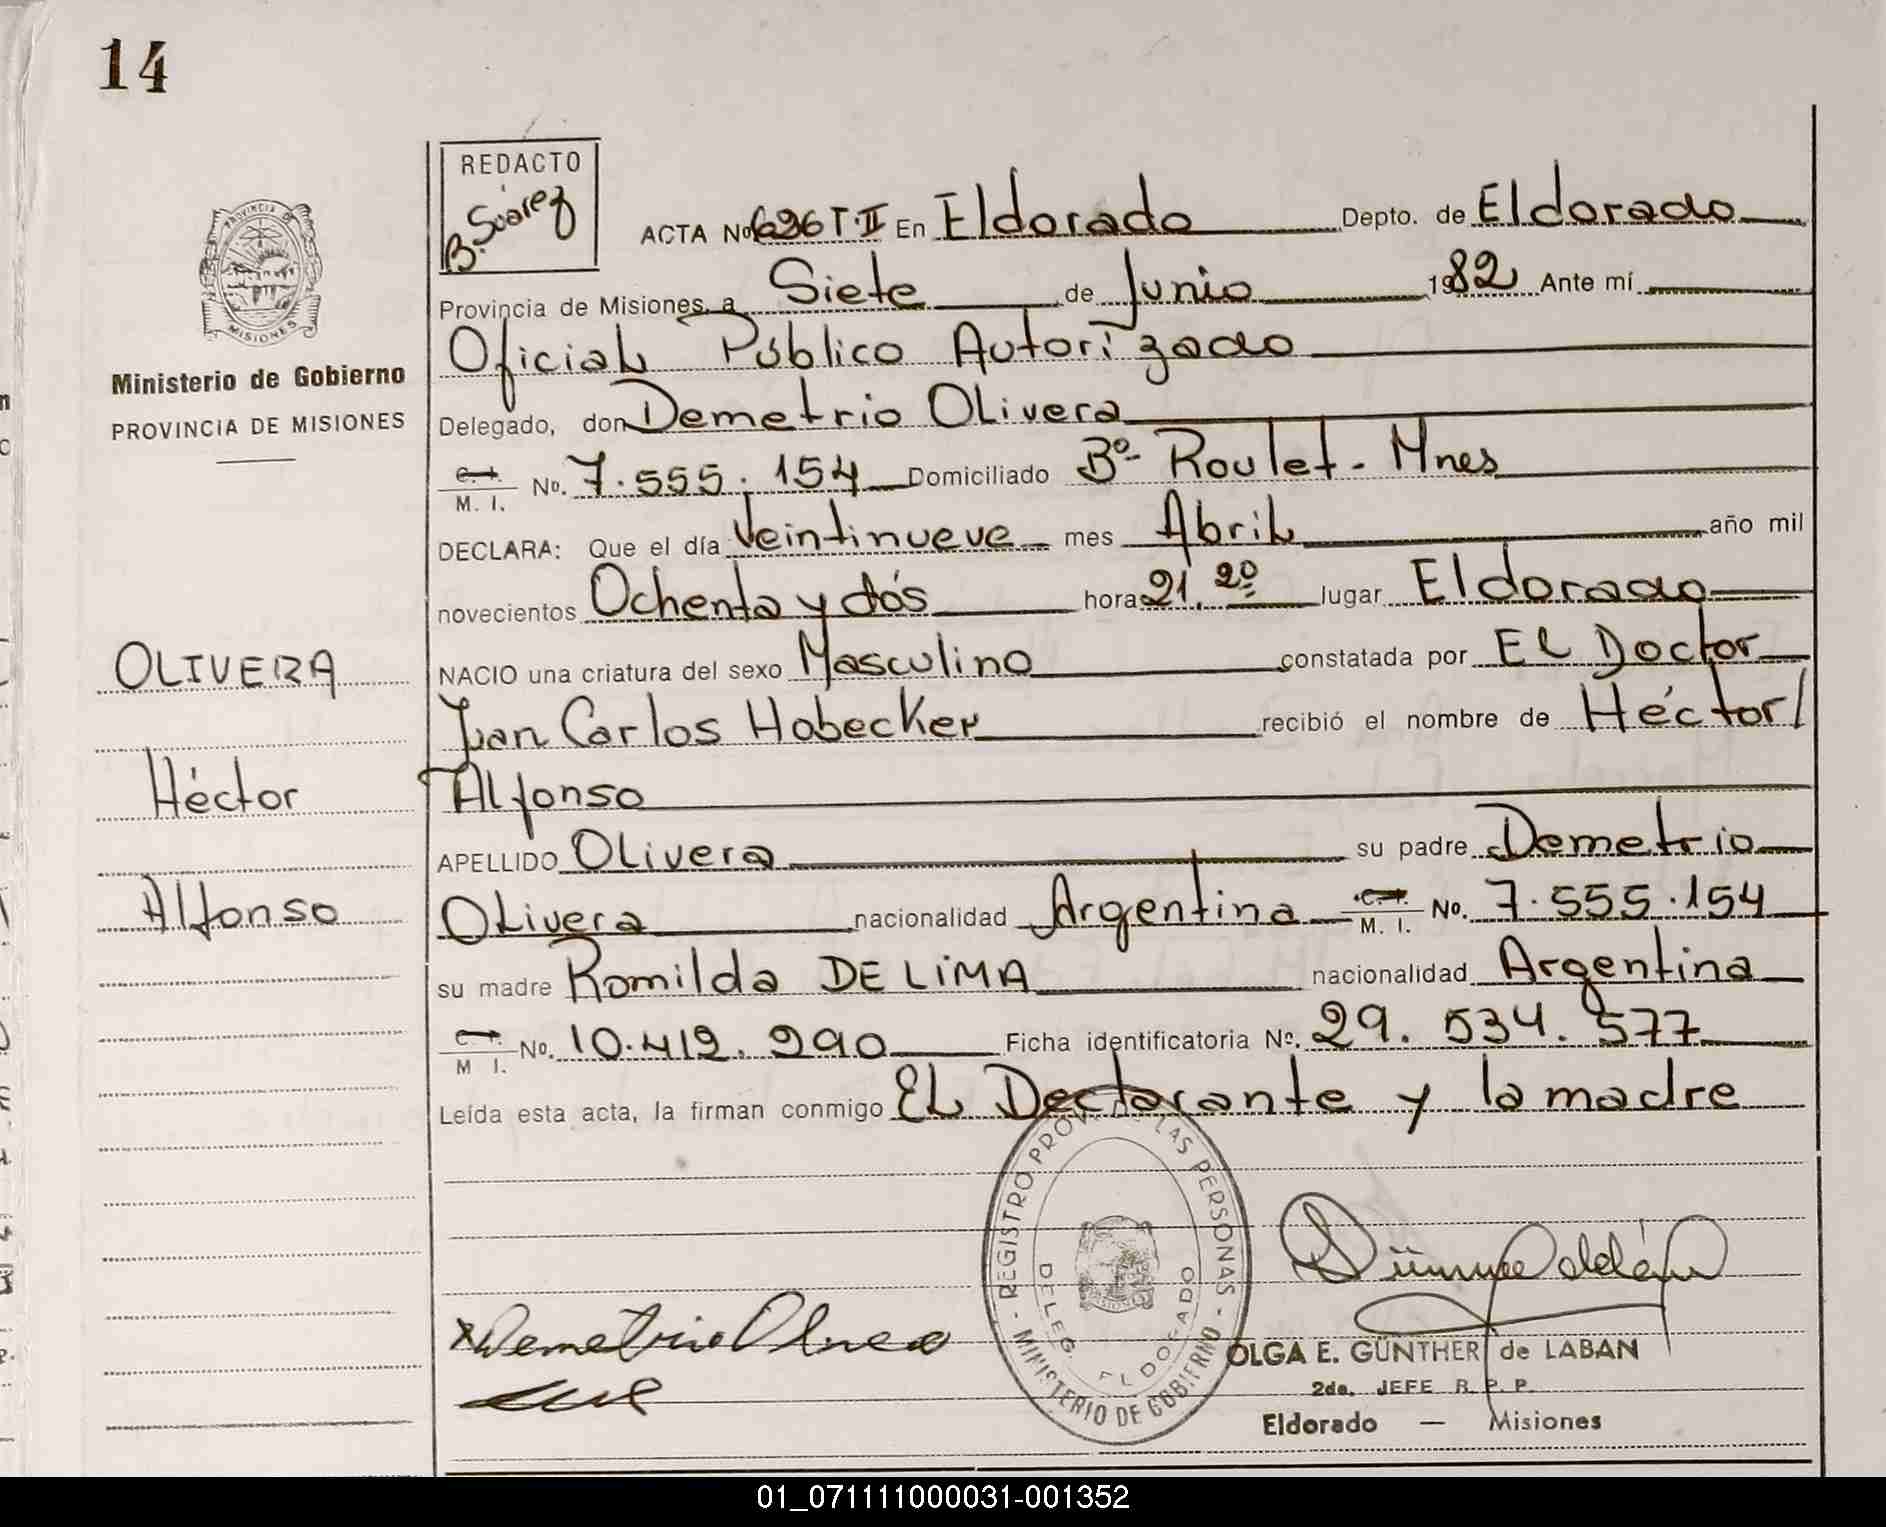 14
REDACTO
B. Suarez
PROVINCIA DE
MISIONES
Ministerio de Gobierno
PROVINCIA DE MISIONES
ACTA No 696 T.II En Eldorado Depto. de Eldorado
Provincia de Misiones, a Siete de Junio 1982 Ante mí
Oficial Público Autorizado
Delegado, don Demetrio Olivera
C.I. M. I. No. 7.555.154 Domiciliado Bº Roulet - Mnes
DECLARA: Que el día Veintinueve mes Abril año mil
novecientos Ochenta y dós hora 21.20 lugar Eldorado
NACIO una criatura del sexo Masculino constatada por El Doctor
Juan Carlos Hobecker recibió el nombre de Héctor/
Alfonso
APELLIDO Olivera su padre Demetrio
Olivera nacionalidad Argentina C.I. M. I. No. 7.555.154
su madre Romilda DE LiMA nacionalidad Argentina
C.I. M I. No. 10.412.290 Ficha identificatoria Nº. 29.534.577
Leída esta acta, la firman conmigo El Declarante y la madre
OLIVERA
Héctor
Alfonso
- REGISTRO PROV. DE LAS PERSONAS -
MINISTERIO DE GOBIERNO
DELEG. ELDORADO
x Demetrio Olivera
OLGA E. GÜNTHER de LABAN
2da. JEFE R. P. P.
Eldorado — Misiones
01_071111000031-001352